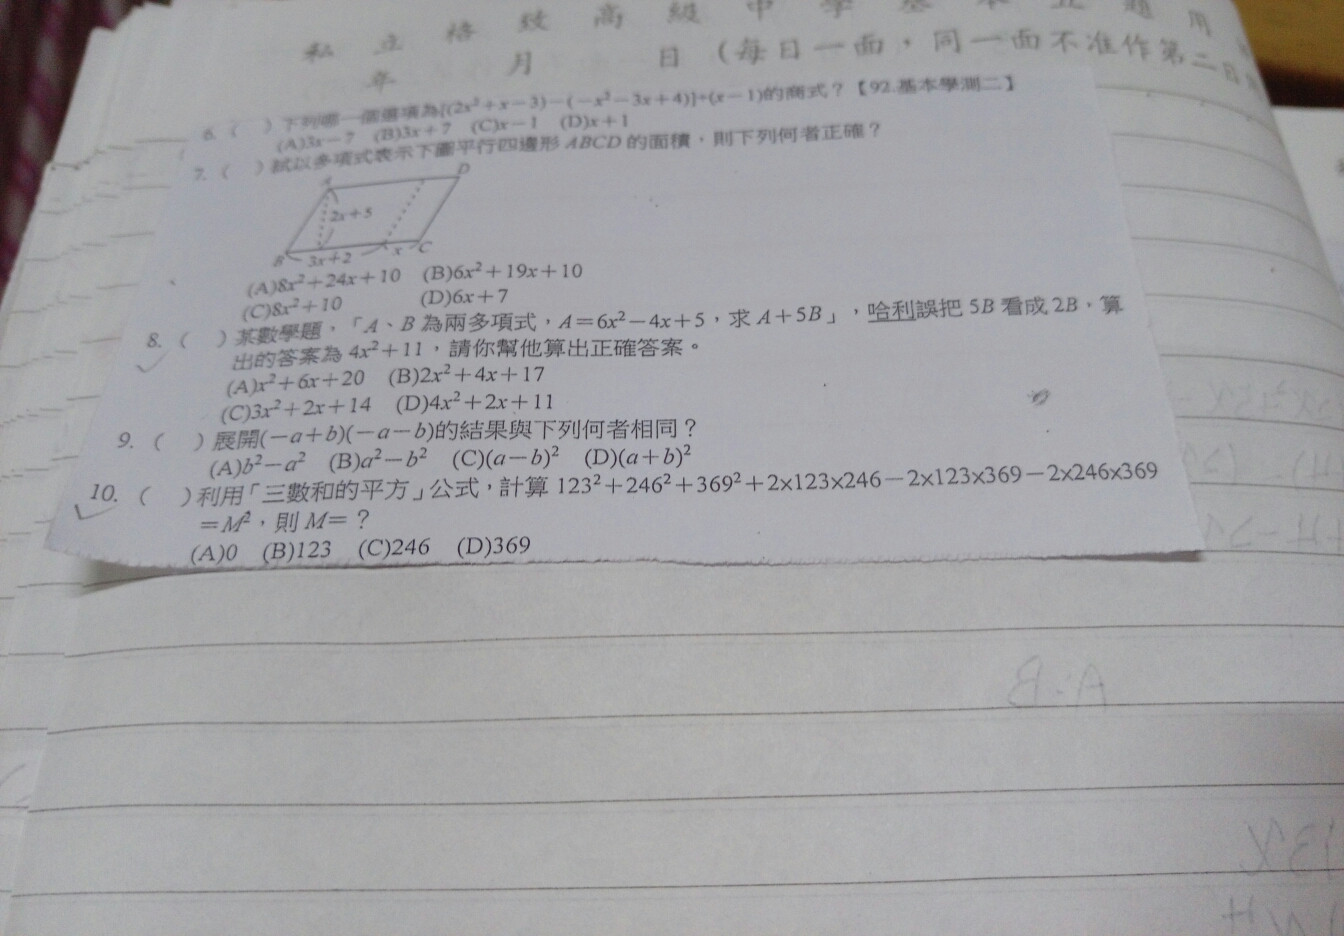 私立格致高級中學基本立題用
年 月 日（每日一面，同一面不准作第二日
6.（ ）下列哪一個選項為[(2x²+x－3)－(－x²－3x+4)]÷(x－1)的商式？【92.基本學測二】
(A)3x－7 (B)3x+7 (C)x－1 (D)x+1
7.（ ）試以多項式表示下圖平行四邊形ABCD的面積，則下列何者正確？
A D
2x+5
B 3x+2 x C
(A)8x²+24x+10 (B)6x²+19x+10
(C)8x²+10 (D)6x+7
8.（ ）某數學題，「A、B為兩多項式，A＝6x²－4x+5，求A+5B」，哈利誤把5B看成2B，算
出的答案為4x²+11，請你幫他算出正確答案。
(A)x²+6x+20 (B)2x²+4x+17
(C)3x²+2x+14 (D)4x²+2x+11
9.（ ）展開(－a+b)(－a－b)的結果與下列何者相同？
(A)b²－a² (B)a²－b² (C)(a－b)² (D)(a+b)²
10.（ ）利用「三數和的平方」公式，計算123²+246²+369²+2x123x246－2x123x369－2x246x369
＝M²，則M＝？
(A)0 (B)123 (C)246 (D)369